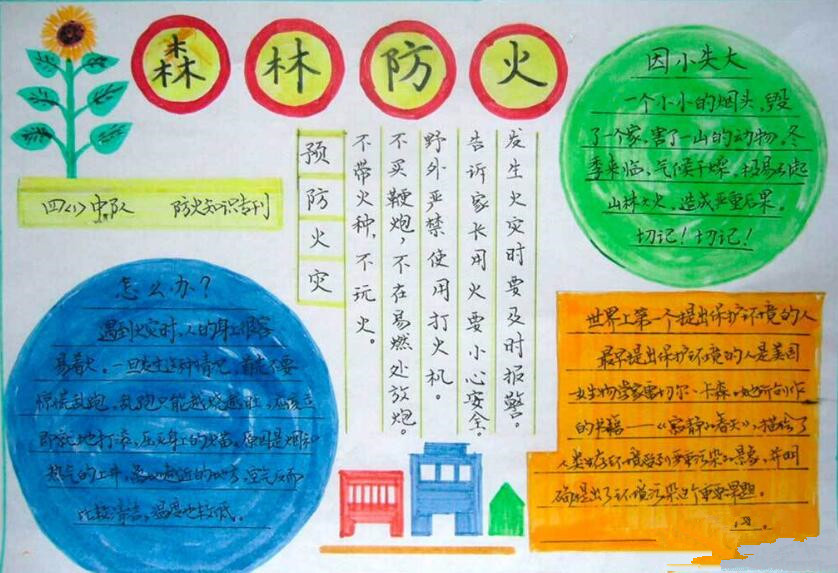 森林防火
四(1)中队 防火知识专刊
预防火灾
不带火种,不玩火。
不买鞭炮,不在易燃处放炮。
野外严禁使用打火机。
告诉家长用火要小心安全。
发生火灾时要及时报警。
因小失大
一个小小的烟头,毁
了一个家,害了一山的动物。冬
季来临,气候干燥,极易引起
山林火火,造成严重后果,
切记!切记!
怎么办?
遇到火灾时,人的身上很容
易着火。一旦发生这种情况,首先不要
惊慌乱跑,乱跑只能越烧越旺,应该立
即就地打滚,压灭身上的火苗。原因是烟和
热气的上升,附近的地方,空气反而
比较清洁,温度也较低。
世界上第一个提出保护环境的人
最早提出保护环境的人是美国
女生物学家雷切尔·卡森。她所创作
的书籍——《寂静的春天》,描绘了
人类生存环境受到严重污染的景象,并明
确提出了环境污染这个重要课题。